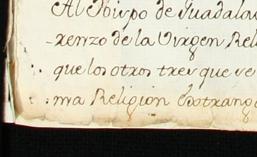 Al Obispo de Guadala
-renzo de la Virgen Reli
que los otros tres que ve
ma Religion Extrange